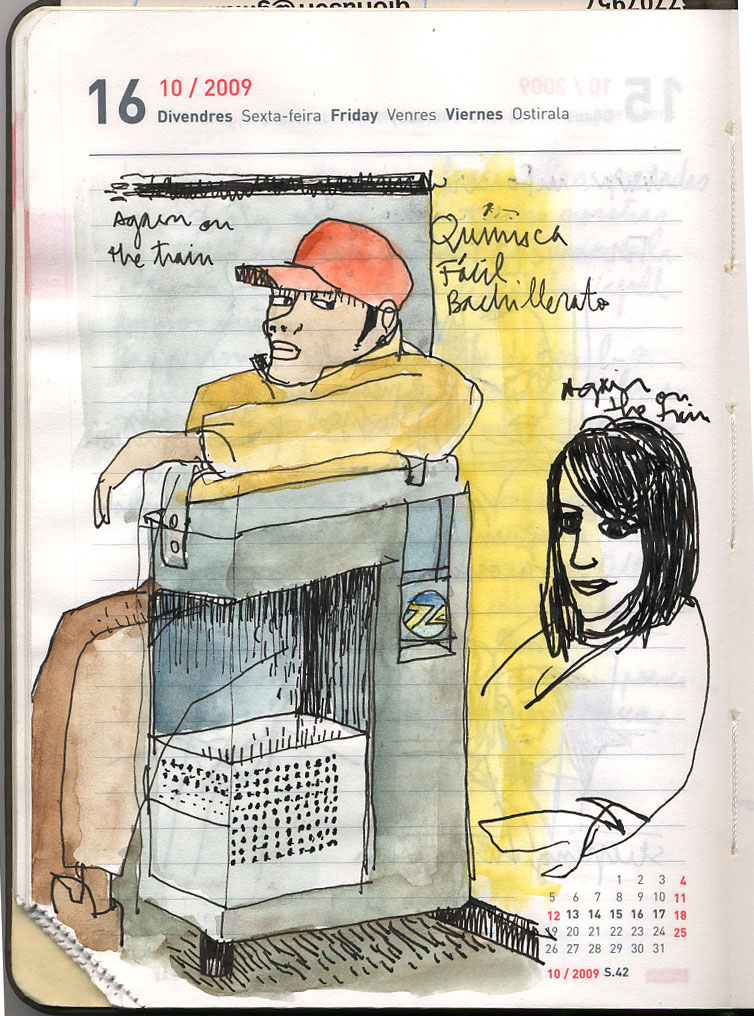 16 10 / 2009
Divendres Sexta-feira Friday Venres Viernes Ostirala
Again on
the train
Química
Fácil.
Bachillerato
Again on
the train
1 2 3 4
5 6 7 8 9 10 11
12 13 14 15 16 17 18
19 20 21 22 23 24 25
26 27 28 29 30 31
10 / 2009 S.42